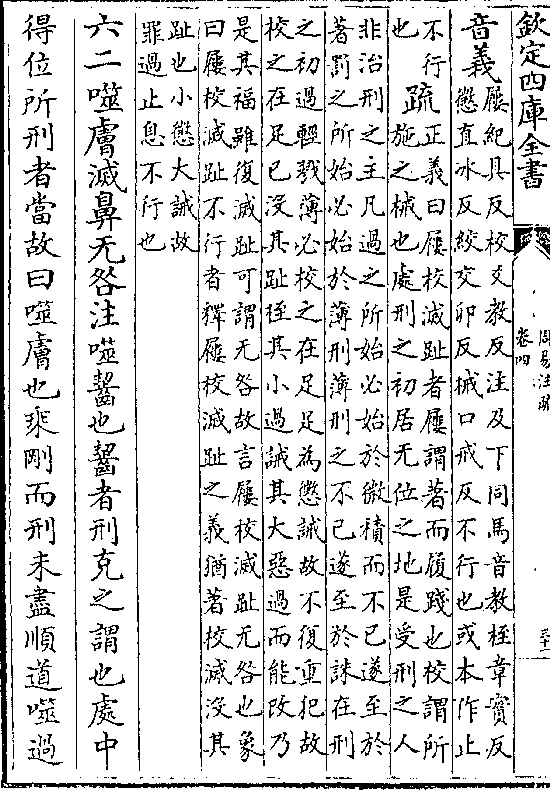 欽定四庫全書
周易注疏
卷四
音義屨紀具反校爻教反注及下同馬音教桎章實反
懲直冰反絞交卯反械口戒反不行也或本作止
不行疏正義曰屨校滅趾者屨謂著而履踐也校謂所
也施之械也處刑之初居无位之地是受刑之人
非治刑之主凡過之所始必始於微積而不已遂至於
著罰之所始必始於薄刑薄刑之不已遂至於誅在刑
之初過輕戮薄必校之在足足為懲誡故不復重犯故
校之在足已没其趾桎其小過誡其大惡過而能改乃
是其福雖復滅趾可謂无咎故言屨校滅趾无咎也象
曰屨校滅趾不行者釋屨校滅趾之義猶著校滅没其
趾也小懲大誡故
罪過止息不行也
六二噬膚滅鼻无咎注噬齧也齧者刑克之謂也處中
得位所刑者當故曰噬膚也乗剛而刑未盡順道噬過